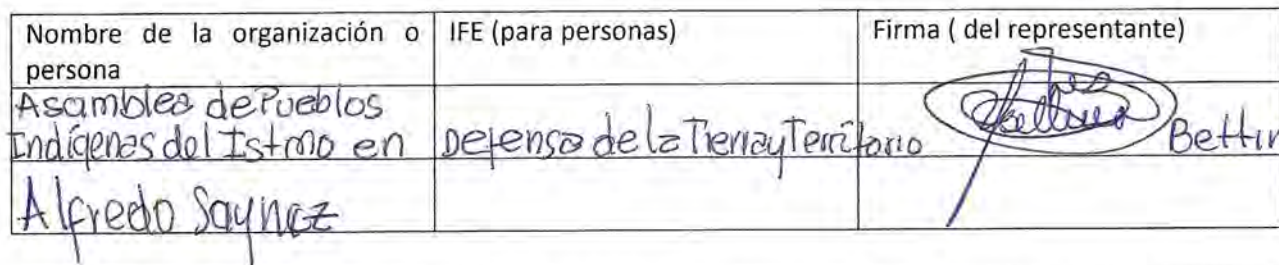 Nombre de la organización o persona
IFE (para personas)
Firma ( del representante)
Asamblea de Pueblos
Indígenas del Istmo en Defensa de la Tierra y Territorio
Bettin
Alfredo Saynez